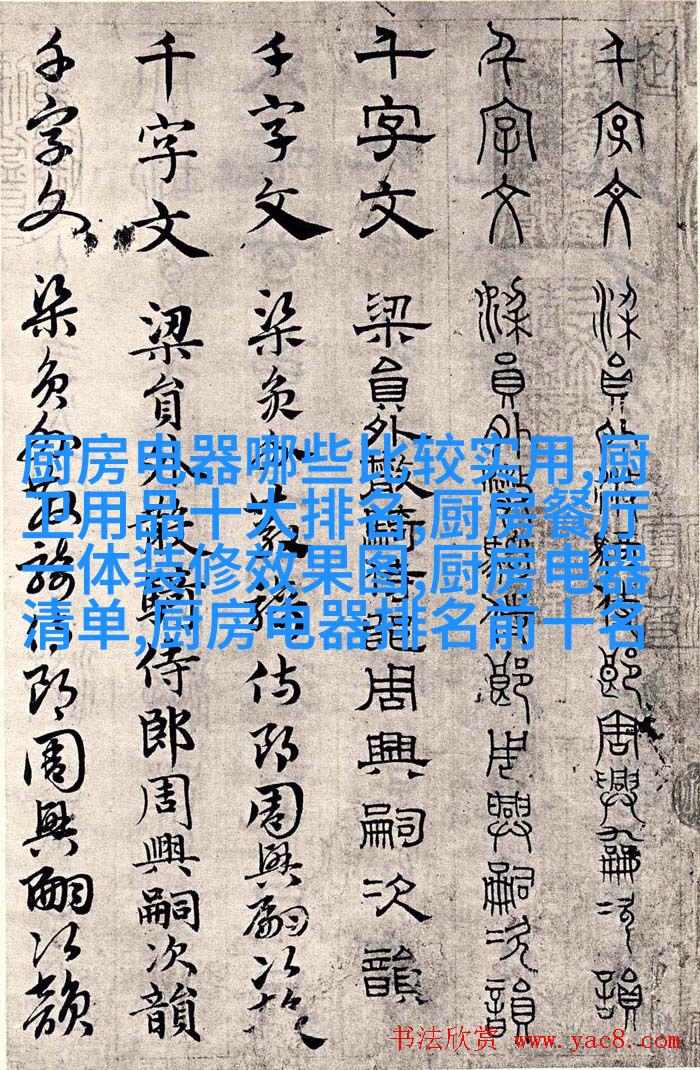 千字文 梁員外散騎侍郎周興嗣次韻
千字文 梁員外散騎侍郎周興嗣次韻
千字文 梁員外散騎侍郎周興嗣次韻
千字文 梁員外散騎侍郎周興嗣次韻
千字文 梁員外散騎侍郎周興嗣次韻
千字文 梁員外散騎侍郎周興嗣次韻
厨房电器哪些比较实用,厨
卫用品十大排名,厨房餐厅
一体装修效果图,厨房电器
清单,厨房电器排名前十名
书法欣赏 www.yac8.com